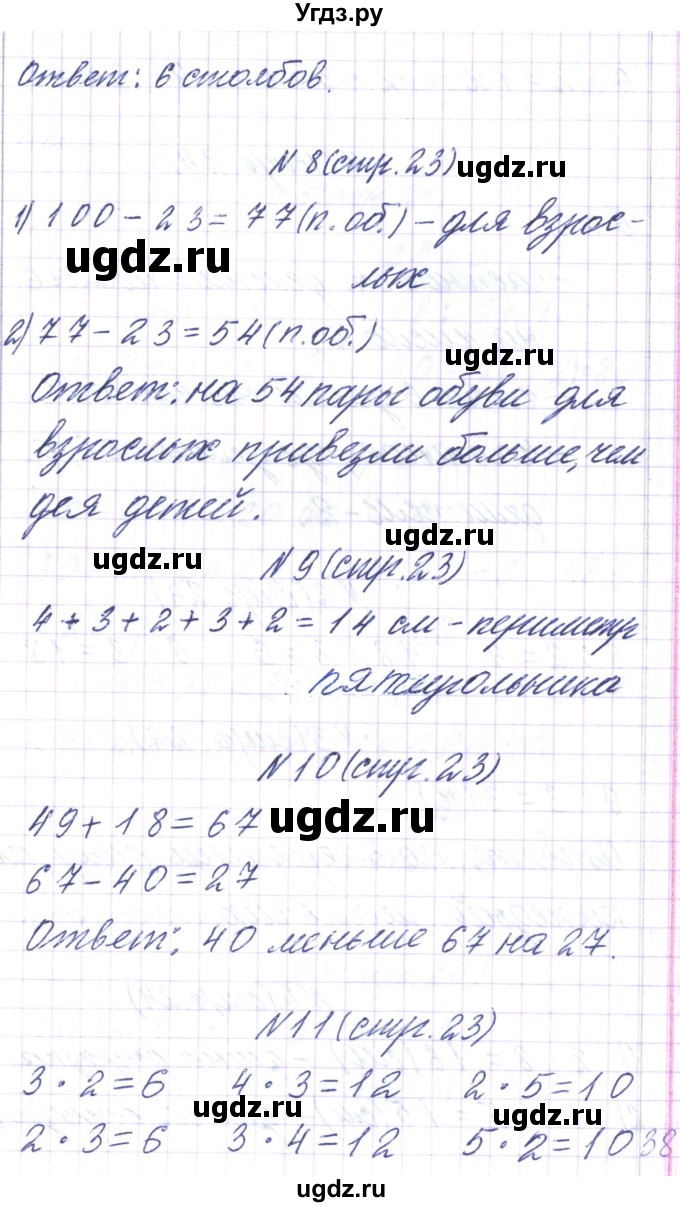 Угдз.ру
Ответ: 6 столбов.
N 8 (стр. 23)
ugdz.ru
1) 100 - 23 = 77 (п. об.) - для взрос-
ugdz.ru
лых
2) 77 - 23 = 54 (п. об.)
ugdz.ru
Ответ: на 54 пары обуви для
взрослых привезли больше, чем
для детей.
ugdz.ru
ugdz.ru
N 9 (стр. 23)
4 + 3 + 2 + 3 + 2 = 14 см - периметр
пятиугольника
N 10 (стр. 23)
49 + 18 = 67
ugdz.ru
67 - 40 = 27
Ответ: 40 меньше 67 на 27.
N 11 (стр. 23)
3 · 2 = 6 4 · 3 = 12 2 · 5 = 10
ugdz.ru ugdz.ru
2 · 3 = 6 3 · 4 = 12 5 · 2 = 10 38
ugdz.ru